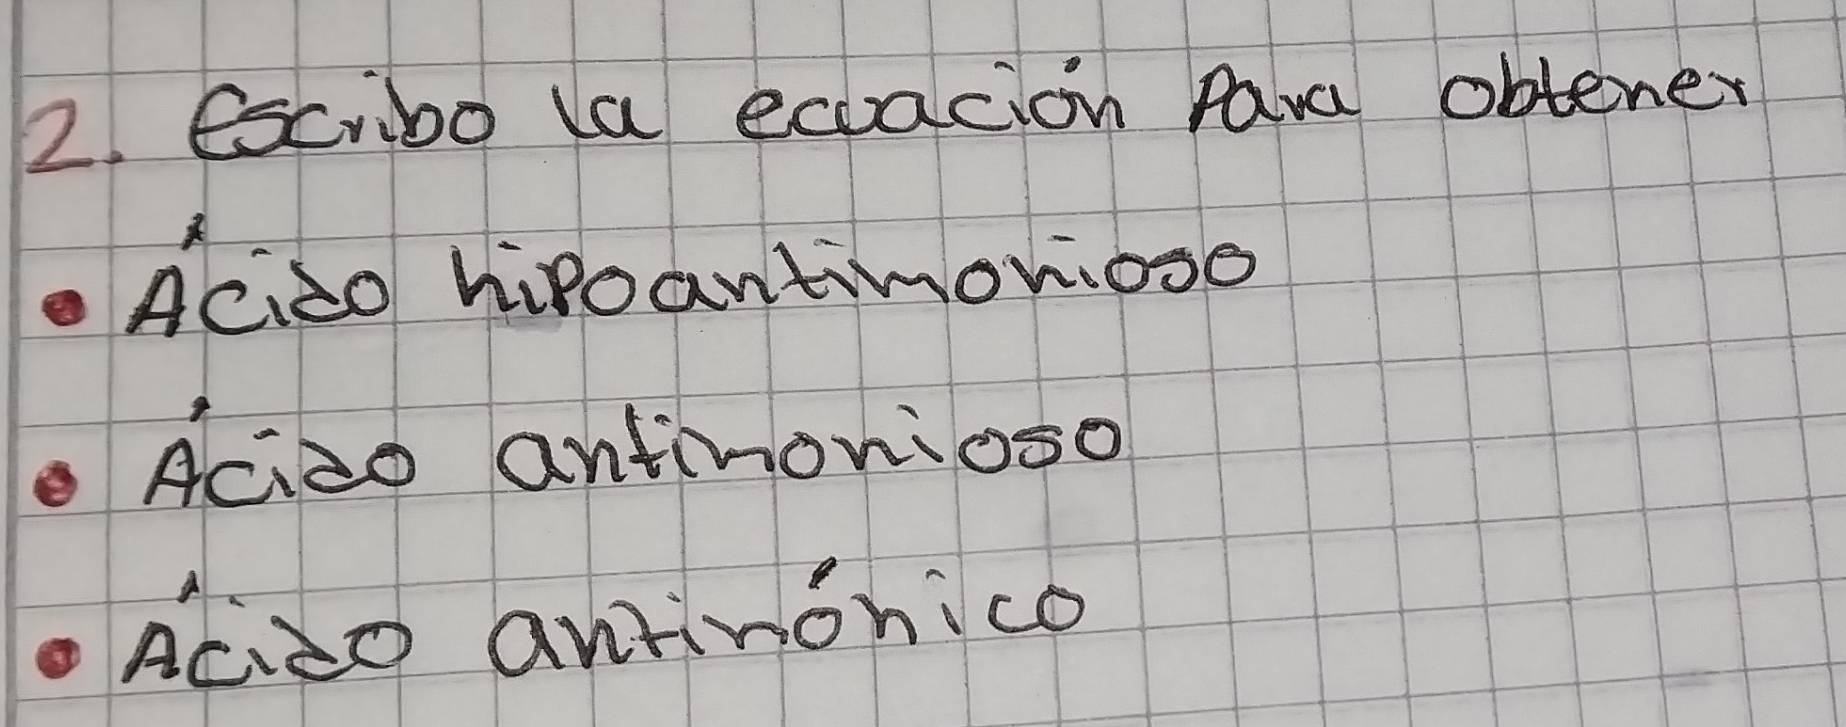 2. escribo la ecuación Para obtener
• Ácido hipoantimonioso
• Ácido antimonioso
• Ácido antimónico